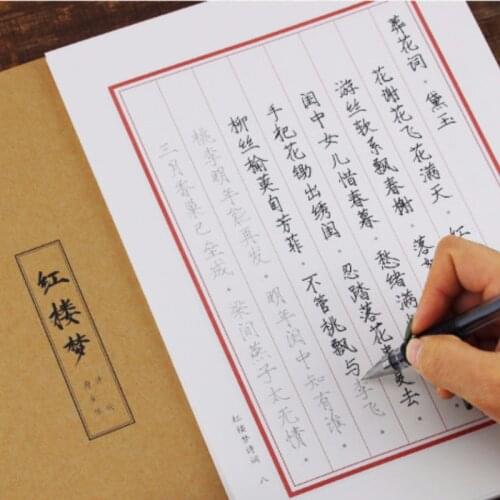 葬花词·黛玉
花谢花飞花满天。红
游丝软系飘春榭。落
闺中女儿惜春暮。愁绪满
手把花锄出绣闺。忍踏落花来复去
柳丝榆荚自芳菲。不管桃飘与李飞
桃李明年能再发。明年闺中知有谁
三月香巢已垒成。梁间燕子太无情。
红楼梦诗词 八
红楼梦